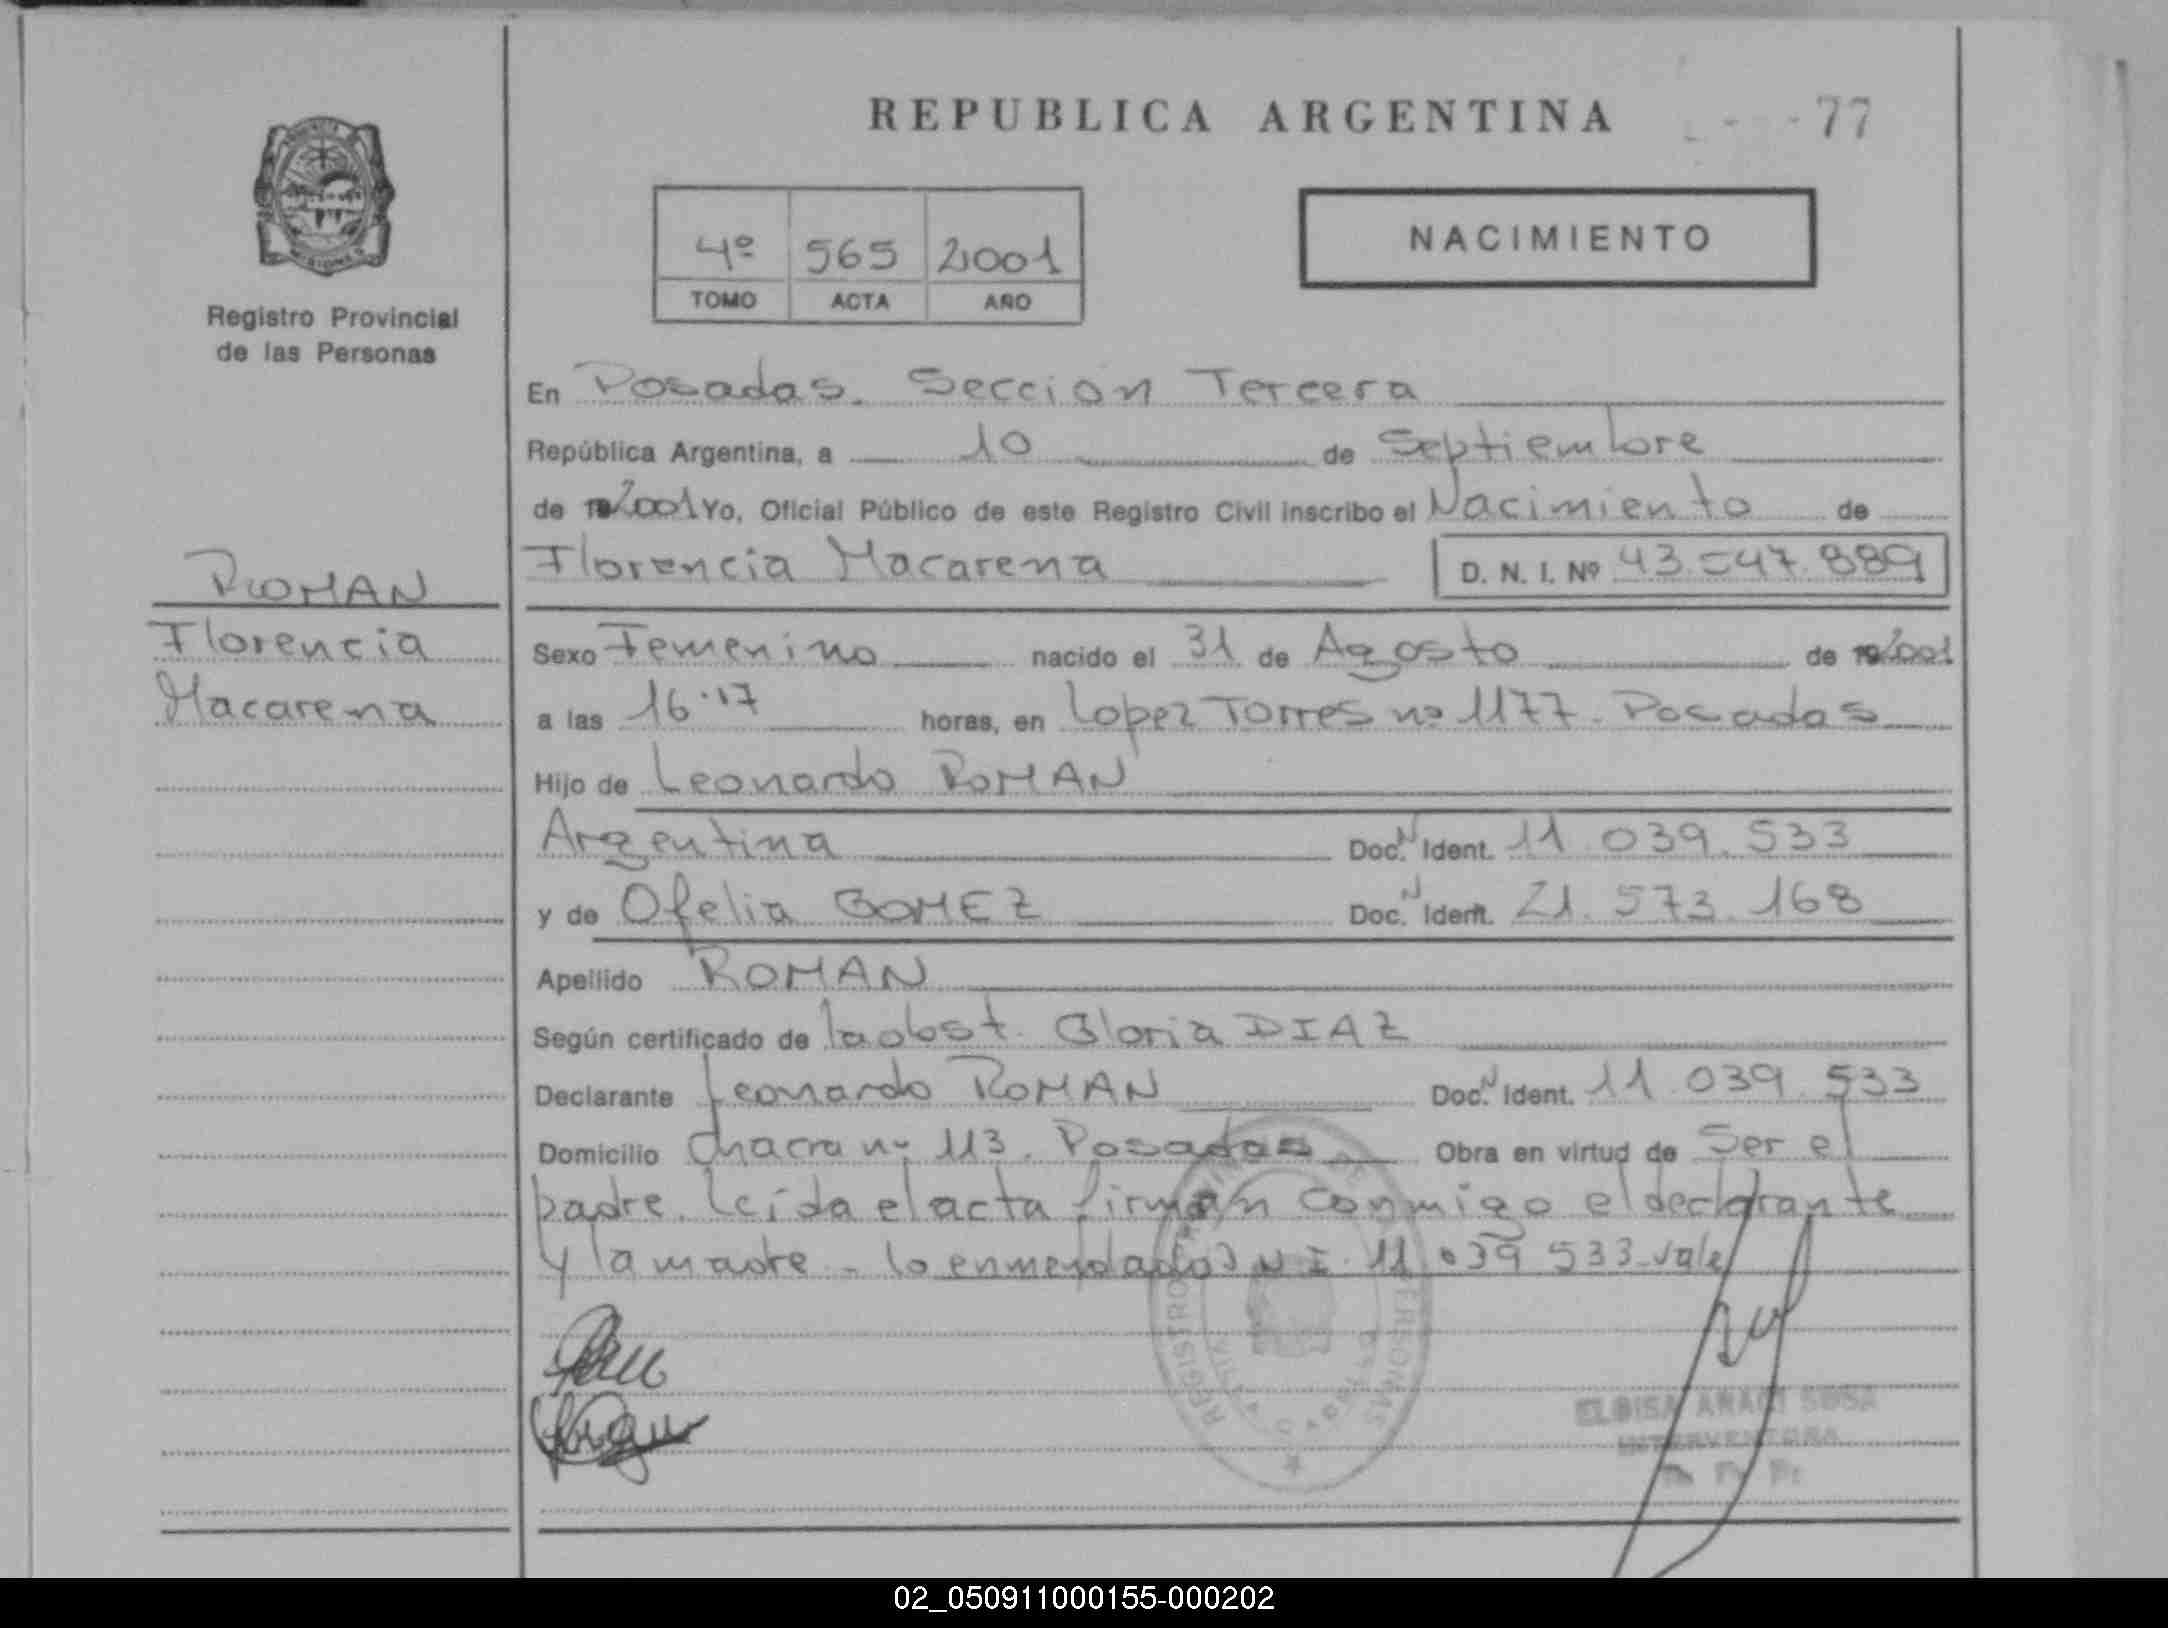 REPUBLICA ARGENTINA 77
4º 565 2001
TOMO ACTA AÑO
NACIMIENTO
MISIONES
Registro Provincial
de las Personas
En Posadas. Sección Tercera
República Argentina, a 10 de Septiembre
de 2001 Yo, Oficial Público de este Registro Civil inscribo el Nacimiento de
Florencia Macarena D. N. I. Nº 43.547.889
ROMAN
Florencia
Macarena
Sexo Femenino nacido el 31 de Agosto de 2001
a las 16.17 horas, en Lopez Torres nº 1177. Posadas
Hijo de Leonardo ROMAN
Argentina Doc. N Ident. 11.039.533
y de Ofelia GOMEZ Doc. N Ident. 21.573.168
Apellido ROMAN
Según certificado de la obst. Gloria DIAZ
Declarante Leonardo ROMAN Doc. N Ident. 11.039.533
Domicilio Chacra nº 113. Posadas Obra en virtud de Ser el
padre. Leída el acta firman conmigo el declarante
y la madre - lo enmendado D N I. 11 039 533 - vale
REGISTRO PROVINCIAL DE LAS PERSONAS
POSADAS
ELOISA ANAHI SOSA
INTERVENTORA
02_050911000155-000202